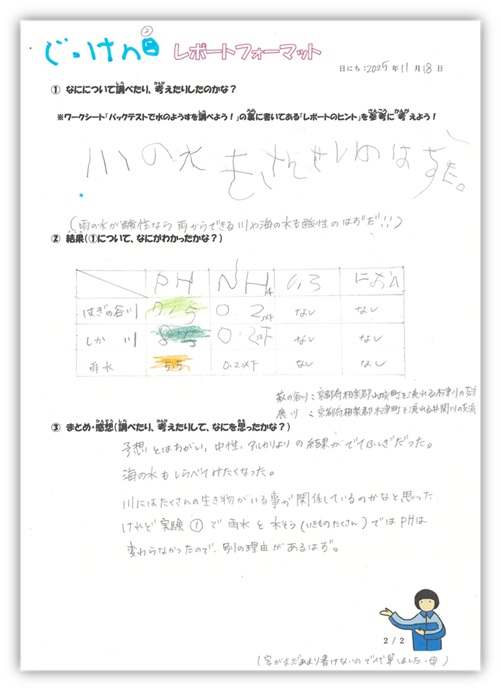 じっけん②
レポートフォーマット
日にち:2025年11月18日
① なにについて調べたり、考えたりしたのかな?
※ワークシート「パックテストで水のようすを調べよう!」の裏に書いてある「レポートのヒント」を参考に考えよう!
川の水もさんせいのはずだ。
(雨の水が酸性なら雨からできる川や海の水も酸性のはずだ!!)
② 結果(①について、なにがわかったかな?)
PH NH4 いろ におい
はぎの谷川 7.5 0.2以下 なし なし
しか川 8.5 0.2以下 なし なし
雨水 5.5 0.2以下 なし なし
萩の谷川:京都府相楽郡山城町を流れる木津川の支流
鹿川:京都府相楽郡木津町を流れる井関川の支流
③ まとめ・感想(調べたり、考えたりして、なにを思ったかな?)
予想とはちがい、中性、アルカリよりの結果がでてふしぎだった。
海の水もしらべてみたくなった。
川にはたくさんの生き物がいる事が関係しているのかなと思った
けれど実験①で雨水と水そう(いきものたくさん)ではPHは
変わらなかったので、別の理由があるはず。
2/2
(字がまだあまり書けないので代筆しました・母)